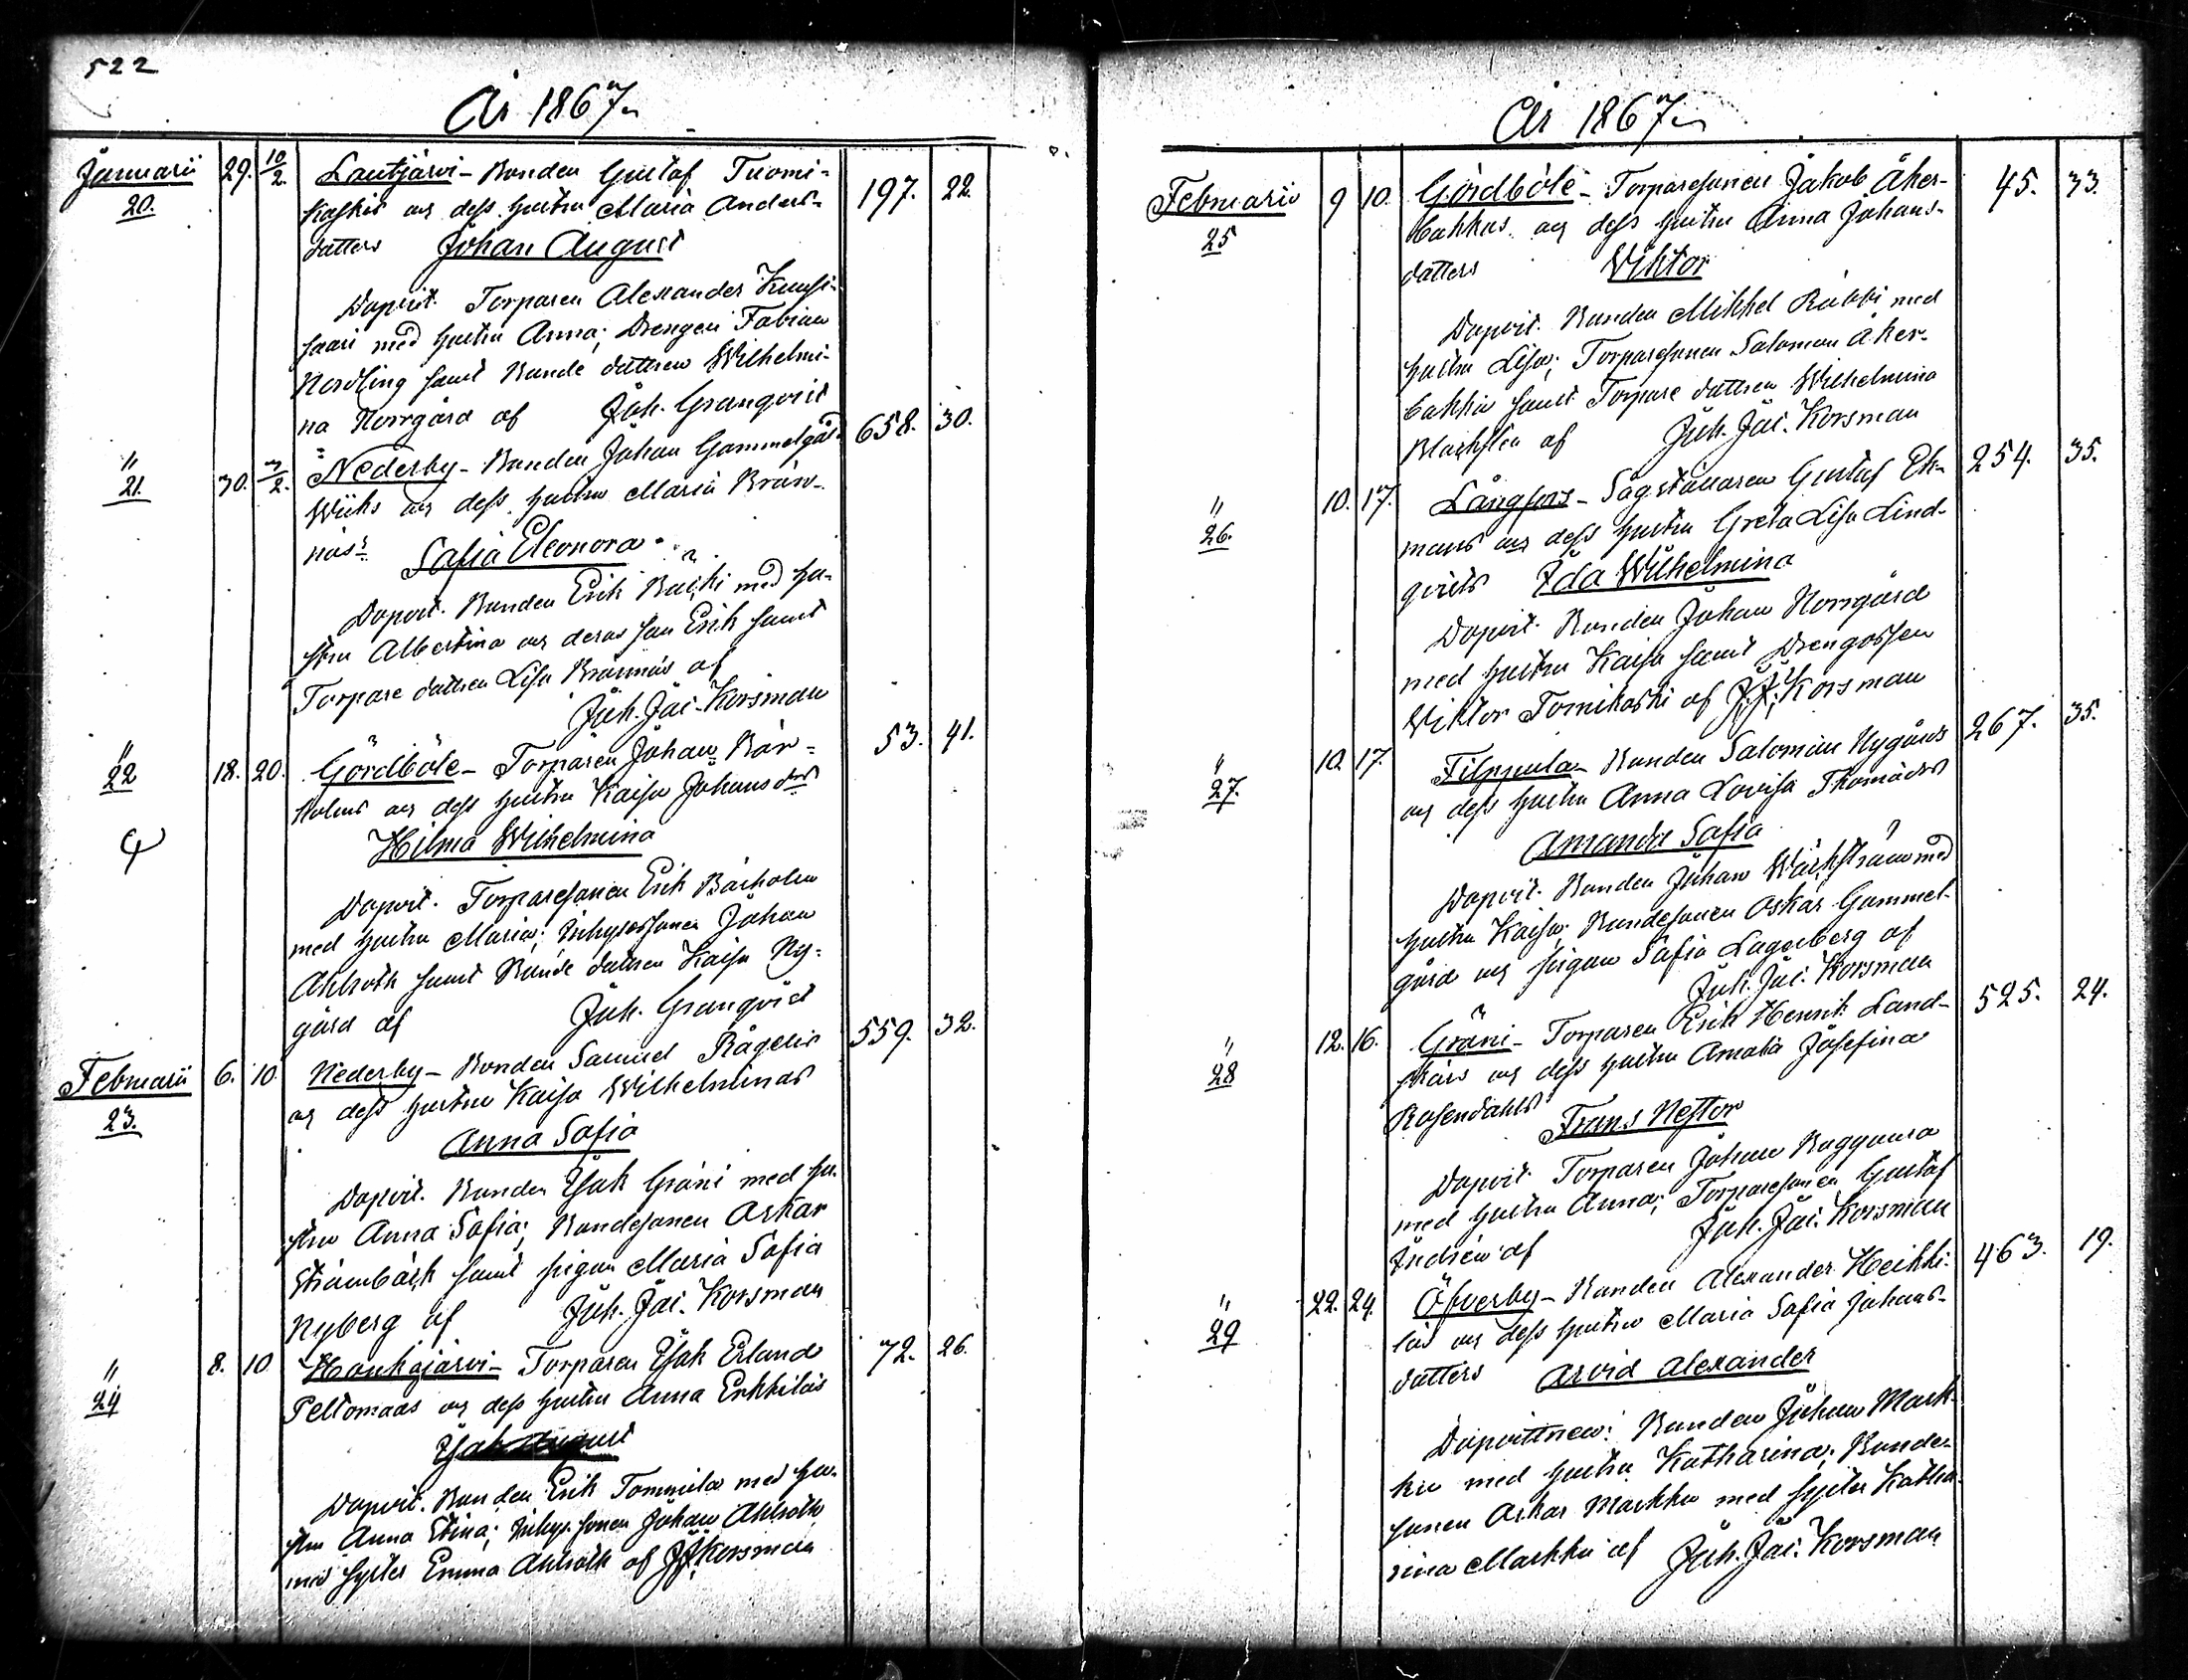 522
År 1867
Januarii 29. 10/2. Lautjärvi - Bonden Gustaf Tuomi- 197. 22.
20. koskis och dess hustru Maria Anders-
dotters Johan August
Dopvit. Torparen Alexander Kuusi-
saari med hustru Anna; Drengen Fabian
Nordling samt Bonde dottren Wilhelmi-
na Norrgård af Joh. Granqvist
" 30. 3/2. Nederby - Bonden Johan Gammelgård- 658. 30.
21. Wiiks och dess hustru Maria Brän-
näs Sofia Eleonora
Dopvit. Bonden Erik Backi med hu-
stru Albertina och deras son Erik samt
Torpare dottren Lisa Brännäs af
Joh. Jac. Korsman
" 18. 20. Gördböle - Torparen Johan Bär- 53. 41.
22 holms och dess hustru Kaisa Johansdrs
Hilma Wilhelmina
Dopvit. Torparesonen Erik Bärholm
med hustru Maria; Inhysessonen Johan
Ahlroth samt Bonde dottren Kaisa Ny-
gård af Joh. Granqvist
Februarii 6. 10. Nederby - Bonden Samuel Rågelis 559. 32.
23. och dess hustru Kaisa Wilhelminas
Anna Sofia
Dopvit. Bonden Isak Gräni med hu-
stru Anna Sofia; Bondesonen Oskar
Strömbäck samt pigan Maria Sofia
Nyberg af Joh. Jac. Korsman
" 8. 10 Honkajärvi - Torparen Isak Erland 72. 26.
24 Peltomaas och dess hustru Anna Erkkiläs
Isak August
Dopvit. Bonden Erik Tommila med hu-
stru Anna Stina; Inhys. sonen Johan Ahlroth
med syster Emma Ahlroth af J.J. Korsman
År 1867
Februarii 9 10. Gördböle - Torparesonen Jakob Åker- 45. 33.
25 backas och dess hustru Anna Johans-
dotters Viktor
Dopvit. Bonden Mikkel Räbbi med
hustru Lisa; Torparesonen Salomon Åker-
backa samt Torpare dottren Wilhelmina
af Joh. Jac. Korsman
" 10. 17. Långfors - Sågställaren Gustaf Ek- 254. 35.
26. mans och dess hustru Greta Lisa Lind-
qvists Ida Wilhelmina
Dopvit. Bonden Johan Norrgård
med hustru Kaisa samt Drengossen
Viktor Tomikoski af J.J. Korsman
" 10. 17. Filppula - Bonden Salomon Nygårds 267. 35.
27. och dess hustru Anna Lovisa Thomædrs
Amanda Sofia
Dopvit. Bonden Johan Wäckström med
hustru Kaisa; Bondesonen Oskar Gammel-
gård och pigan Sofia Lagerberg af
Joh. Jac. Korsman
" 12. 16. Gräni - Torparen Erik Henrik Land- 525. 24.
28 skärs och dess hustru Amalia Josefina
Rosendahls Frans Nestor
Dopvit. Torparen Johan Buggmosa
med hustru Anna; Torparesonen Gustaf
af Joh. Jac. Korsman
" 22. 24. Öfverby - Bonden Alexander Heikki- 463. 19.
29 läs och dess hustru Maria Sofia Johans-
dotters Arvid Alexander
Dopvittnen: Bonden Johan Mark-
ku med hustru Katharina; Bonde-
sonen Oskar Markku med syster Katha-
rina Markku af Joh. Jac. Korsman